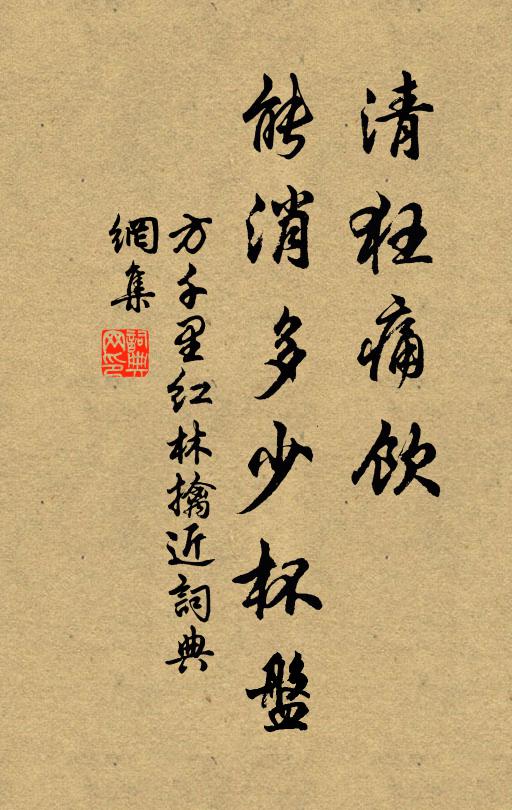 清狂痛飲
能消多少杯盤
方千里紅林擒近詞典
網集
詞典
网印